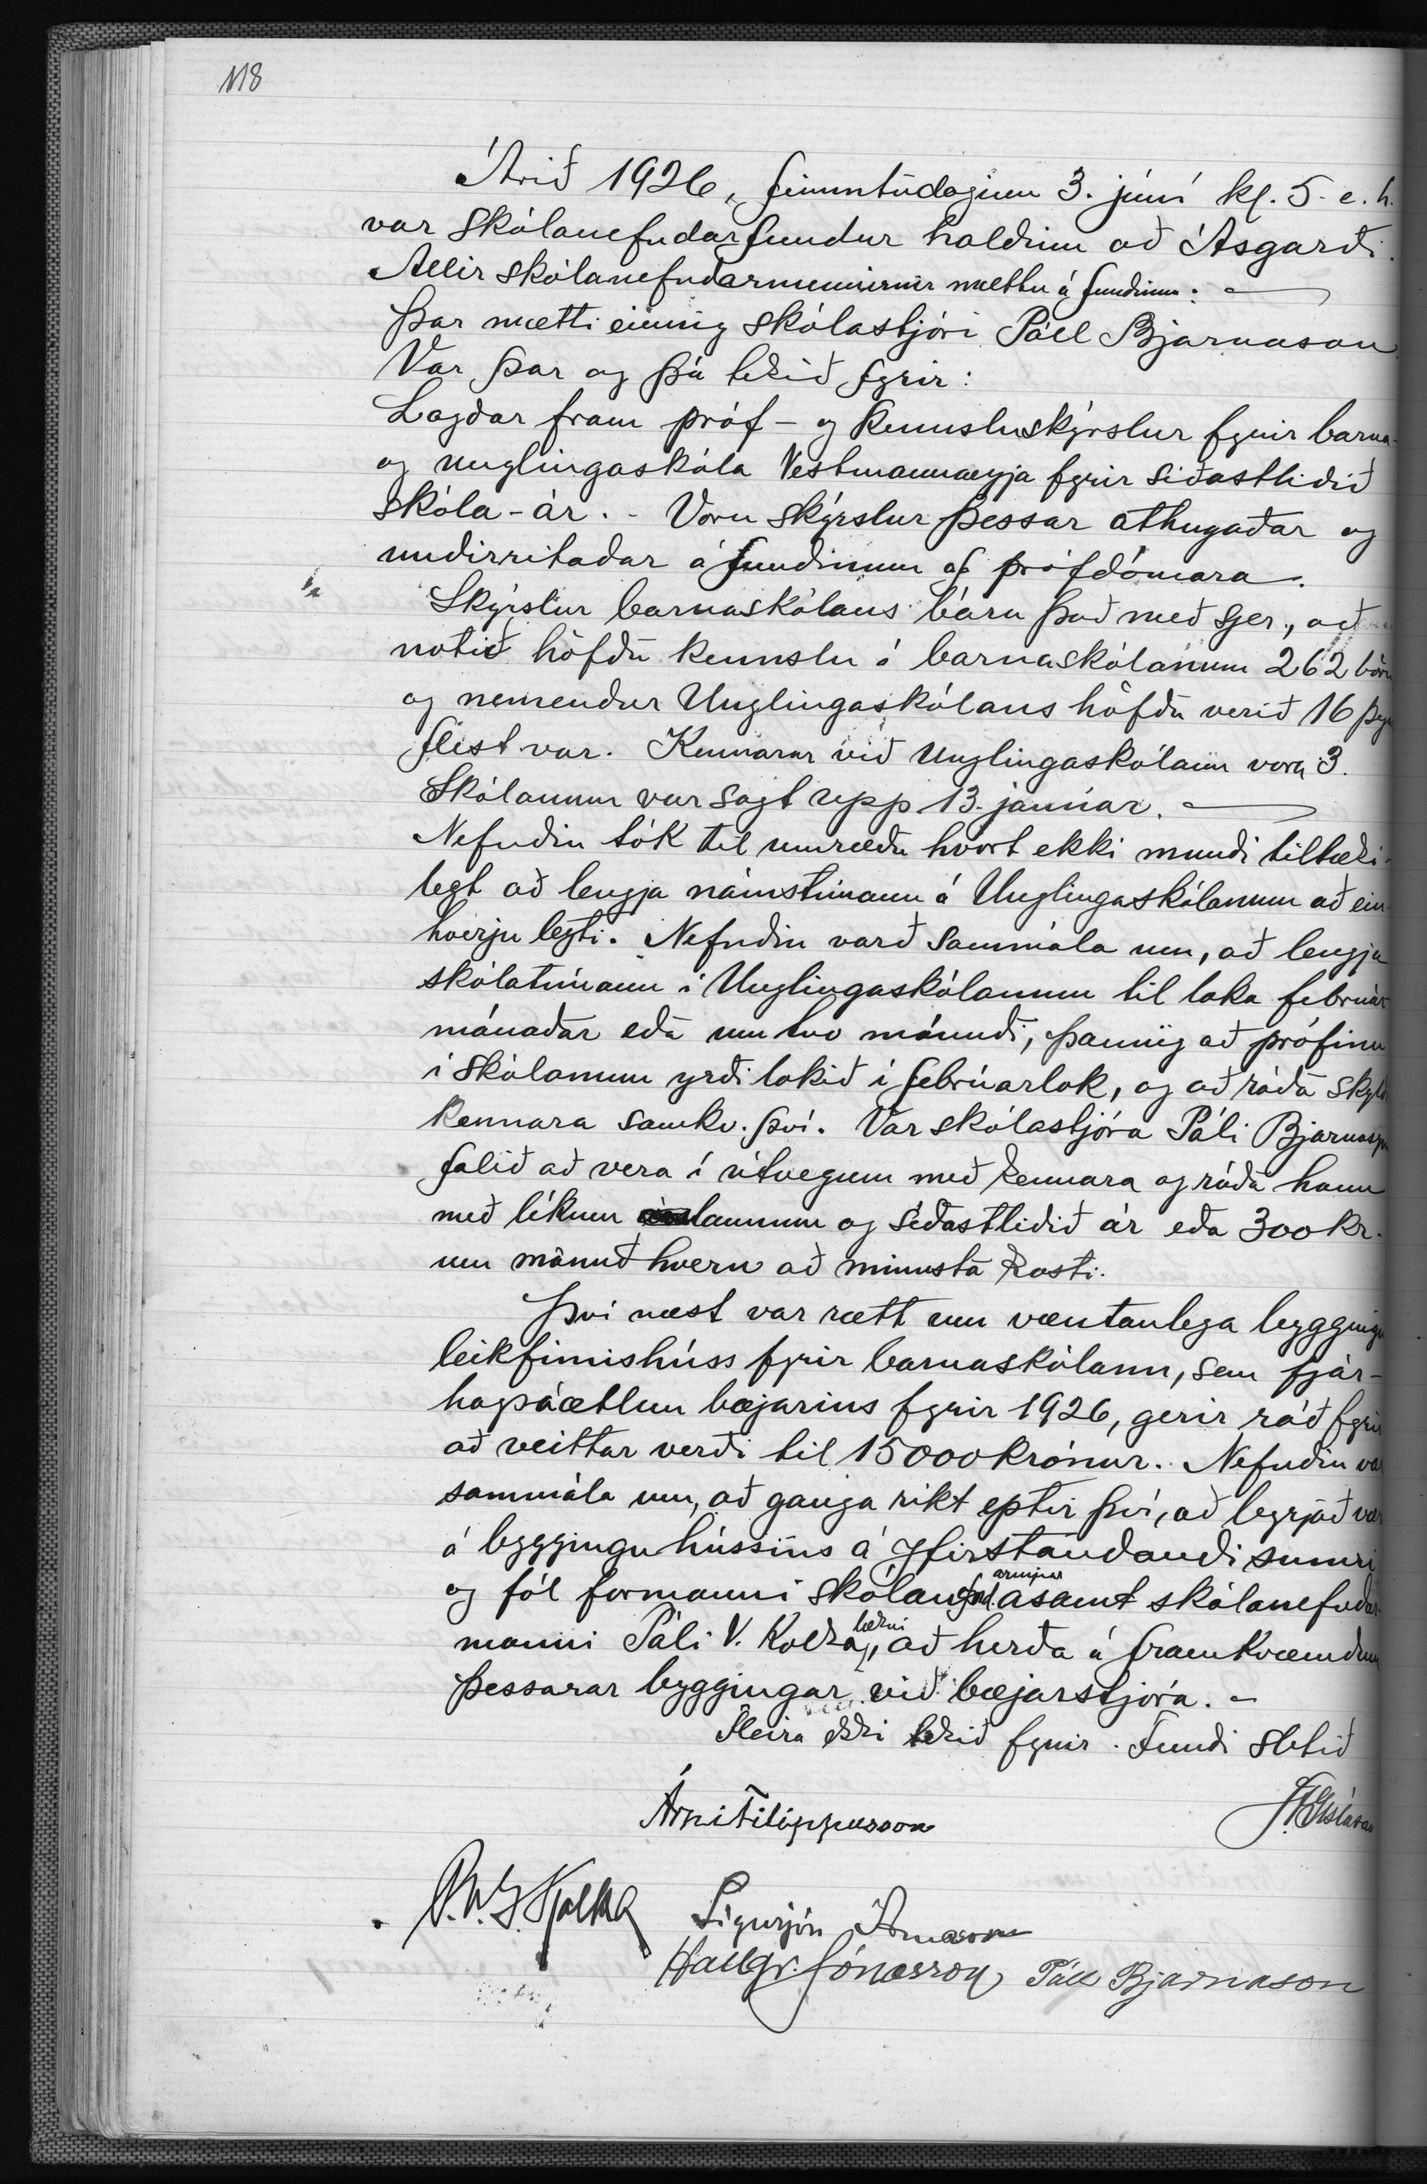 118
Árið 1926, fimmtudaginn 3. júní kl. 5. e. h.
var skólanefndarfundur haldinn að Ásgarði.
Allir skólanefndarmennirnir mættu á fundinum: —
Þar mætti einnig skólastjóri Páll Bjarnason
Var þar og þá tekið fyrir:
Lagðar fram próf- og kennsluskýrslur fyrir barna-
og unglingaskóla Vestmannaeyja fyrir síðastliðið
skóla-ár. - Voru skýrslur þessar athugaðar og
undirritaðar á fundinum af prófdómara.
Skýrslur barnaskólans báru það með sjer, að
notið höfðu kennslu í barnaskólanum 262 börn
og nemendur Unglingaskólans höfðu verið 16 þegar
flest var. Kennarar við Unglingaskólann voru 3.
Skólanum var sagt upp 13. janúar. —
Nefndin tók til umræðu hvort ekki mundi tiltæki-
legt að lengja námstímann á Unglingaskólanum að ein-
hverju leyti. Nefndin varð sammála um, að lengja
skólatímann í Unglingaskólanum til loka febrúar
mánaðar eða um tvo mánuði, þannig að prófinu
í skólanum yrði lokið í febrúarlok, og að ráða skyldi
kennara samkv. því. Var skólastjóra Páli Bjarnasyni
falið að vera í útvegum með kennara og ráða hann
með líkum launum og síðastliðið ár eða 300 kr.
um mánuð hvern að minnsta kosti.
Því næst var rætt um væntanlega byggingu
leikfimishúss fyrir barnaskólann, sem fjár-
hagsáætlun bæjarins fyrir 1926, gerir ráð fyrir
að veittar verði til 15000 krónur. Nefndin var
sammála um, að ganga ríkt eptir því, að byrjað væri
á byggingu hússins á yfirstandandi sumri
og fól formanni skólanefndarinnar ásamt skólanefndar-
manni Páli V. Kolka, lækni að herða á framkvæmdum
þessarar byggingar við bæjarstjóra. -
Fleira ekki tekið fyrir. Fundi slitið
Árni Filippusson J. Gíslason
P. V. G. Kolka Sigurjón Árnason
Hallgr. Jónasson Páll Bjarnason